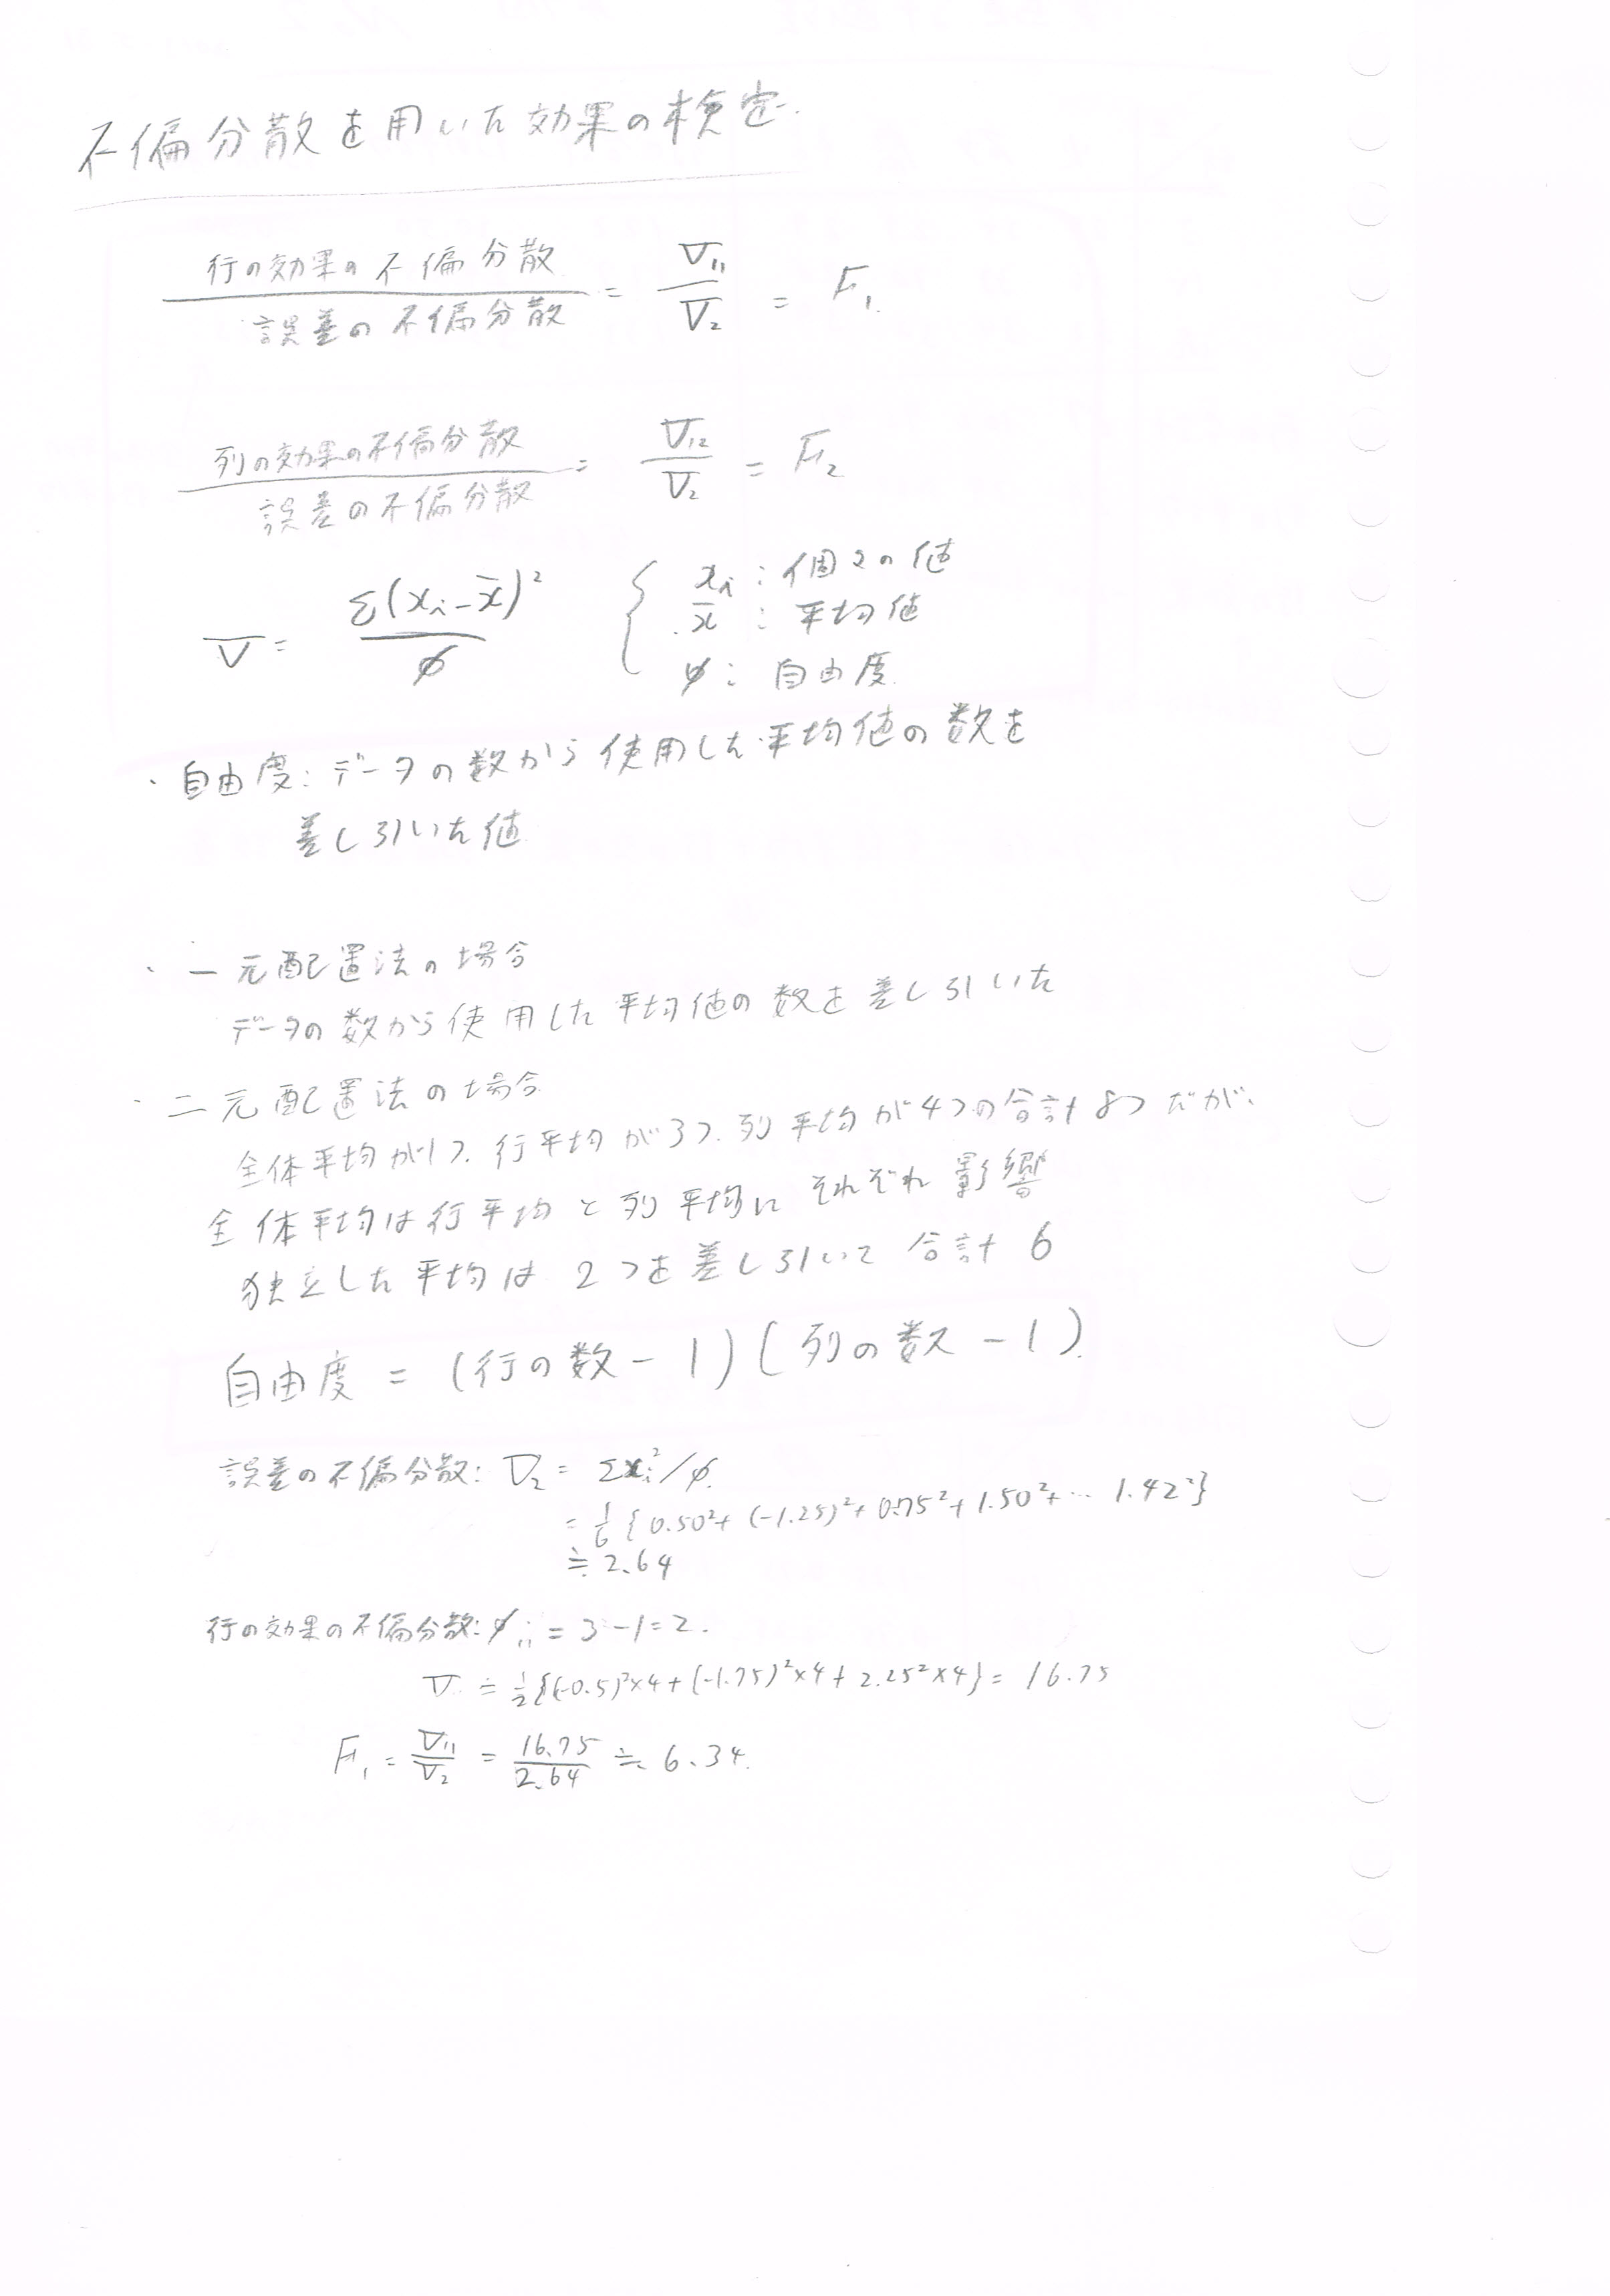 不偏分散を用いた効果の検定.
行の効果の不偏分散 / 誤差の不偏分散 = V₁₁ / V₂ = F₁.
列の効果の不偏分散 / 誤差の不偏分散 = V₁₂ / V₂ = F₂
V = Σ(xᵢ-x̄)² / φ { xᵢ : 個々の値
x̄ : 平均値
φ : 自由度.
・自由度: データの数から使用した平均値の数を
差し引いた値
・一元配置法の場合
データの数から使用した平均値の数を差し引いた
・二元配置法の場合
全体平均が1つ. 行平均が3つ. 列平均が4つの合計8つだが、
全体平均は行平均と列平均にそれぞれ影響
独立した平均は2つを差し引いて合計6
自由度 = (行の数-1)(列の数-1).
誤差の不偏分散: V₂ = Σxᵢ²/φ.
= 1/6 {0.50²+(-1.25)²+0.75²+1.50²+… 1.42²}
≒ 2.64
行の効果の不偏分散: φ₁₁ = 3-1=2.
V ≒ 1/2{(-0.5)²×4+(-1.75)²×4+2.25²×4} = 16.75
F₁ = V₁₁ / V₂ = 16.75 / 2.64 ≒ 6.34.